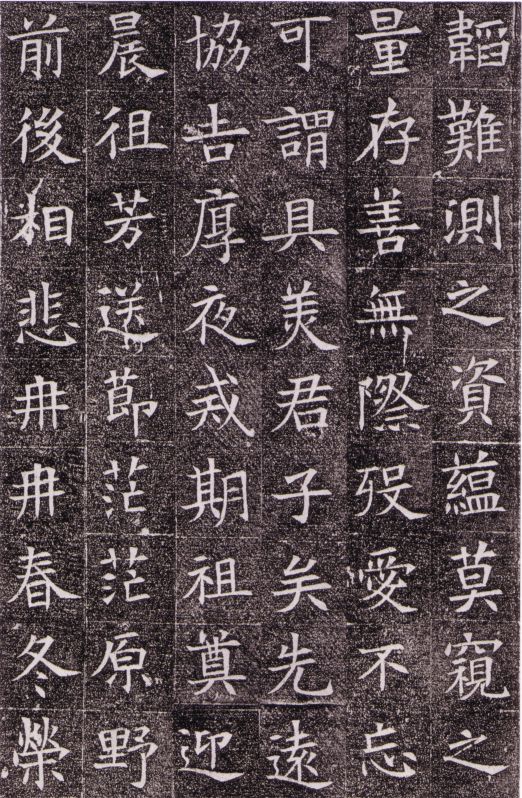 韜難測之資蘊莫窺之
量存善無際歿愛不忘
可謂具美君子矣先遠
協吉厚夜戒期祖奠迎
晨徂芳送節茫茫原野
前後相悲冉冉春冬榮